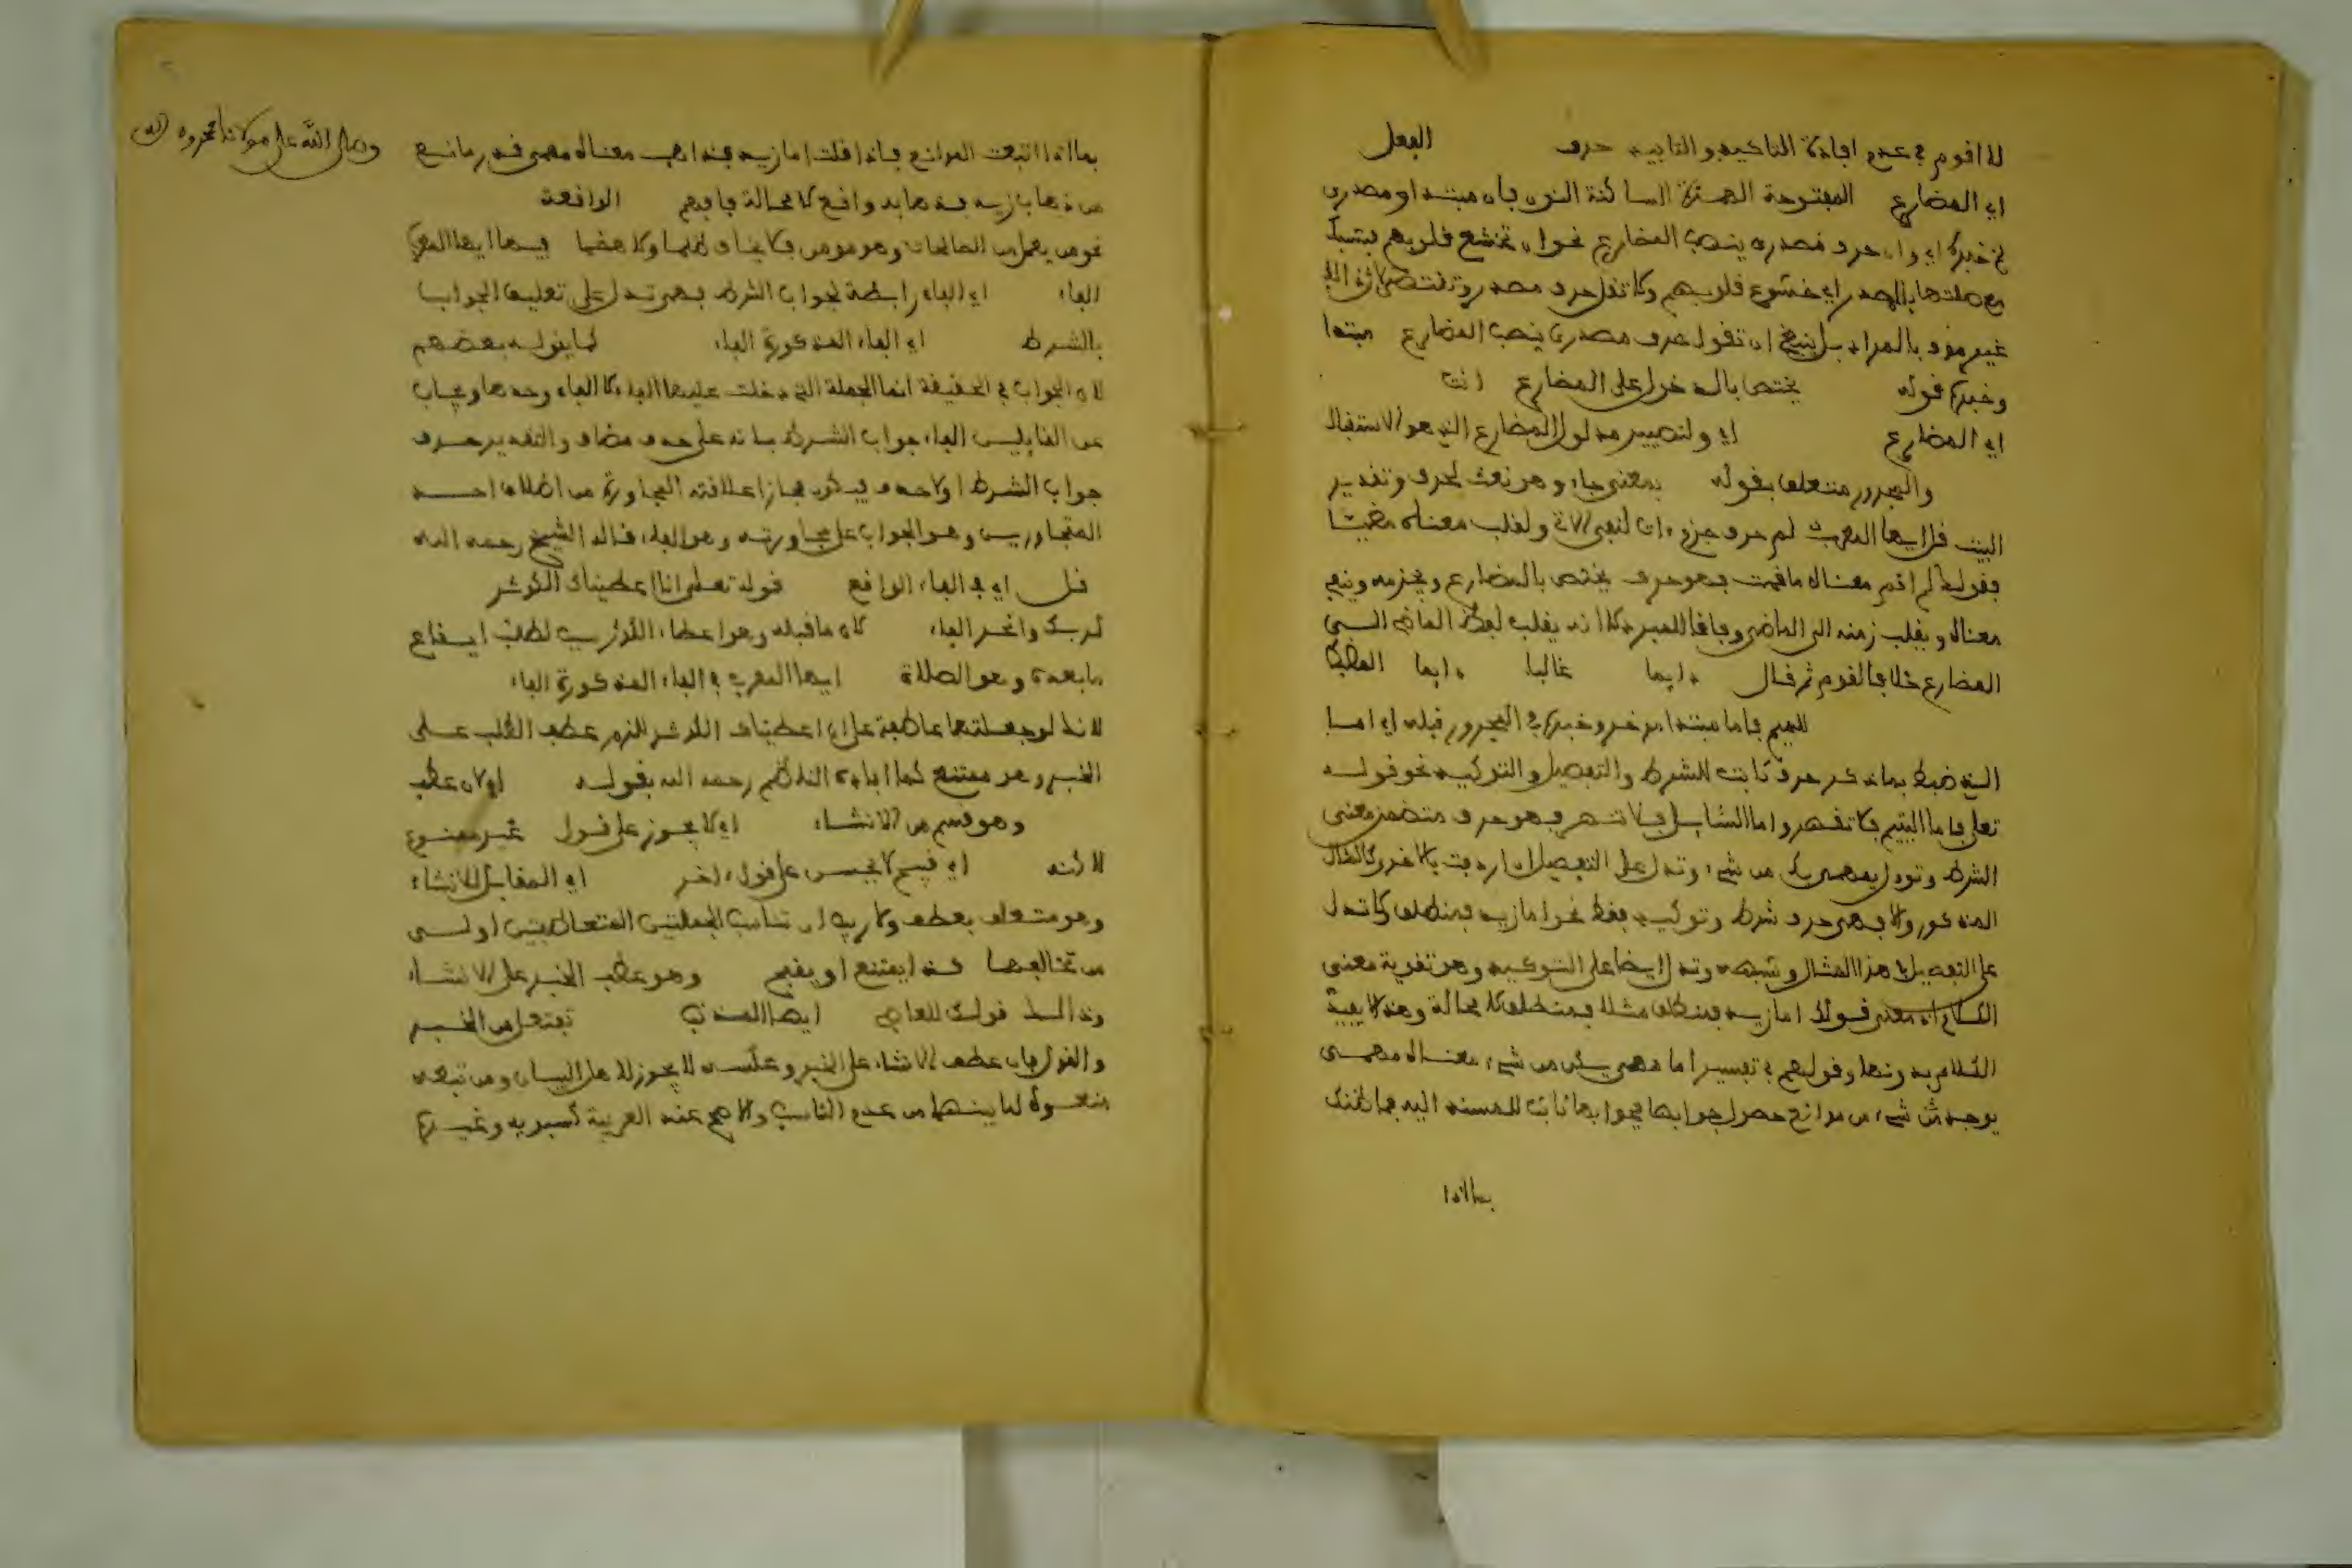 لا اقوم في عدم افادة التاكيد والتابيد حرف الفعل
اي المضارع المفتوحة الهمزة الساكنة النون فان مبتدا ومصدري
خبره اي وان حرف مصدري ينصب المضارع نحو ان تخشع قلوبهم فتسبك
مع صلتها بالمصدر اي خشوع قلوبهم ولا تقل حرف مصدر وتقتصر لان
غير موف بالمراد بل ينبغي ان تقول حرف مصدري ينصب المضارع مبتدا
وخبره قوله يختص بالدخول على المضارع انت
اي المضارع اي ولتصيير مدلول المضارع الذي هو الاستقبال
والمجرور متعلق بقوله بمعنى جاء وهو نعت لحرف وتقدير
البيت قل ايها المعرب لم حرف جزم ات لنفي الات ولقلب معناه مضيا
فقولك لم اقم معناه ما قمت فهو حرف يختص بالمضارع ويجزمه وينفي
معناه ويقلب زمنه الى الماضي وفاقا للمبرد لا انه يقلب لفظ الماضي الى
المضارع خلافا لقوم ثم قال دايما غالبا دايما
للميم فاما مبتدا مؤخر وخبره في المجرور قبله اي اما
الذي ضبط بما ذكر حرف ثابت للشرط والتفصيل والتوكيد نحو قوله
تعلى فاما اليتيم فلا تقهر واما السايل فلا تنهر فهو حرف متضمن معنى
الشرط وتودل بمهمى يك من شيء وتدل على التفصيل ان اردفت بالاخرى كالمثال
المذكور والا فهي حرف شرط وتوكيد فقط نحو اما زيد فمنطلق لا تدل
على التفصيل في هذا المثال وشبهه وتدل ايضا على التوكيد وهو تقوية معنى
الكلام اذ معنى قولك اما زيد فمنطلق مثلا فمنطلق لا محالة وهذا لا يفيده
الكلام بدونها وقولهم في تفسير اما مهمى يكن من شيء معناه مهمى
يوجد من شيء من موانع حصول جوابها فجوابها ثابت للمسند اليه فما ظنك
بما اذا
وصلى الله على مولانا محمد واله
بما اذا انتفت الموانع فاذا قلت اما زيد فذاهب معناه مهمى قدر مانع
من ذهاب زيد فذهابه واقع لا محالة فافهم الواقعة
نحو من يعمل من الصالحات وهو مومن فلا يخاف ظلما ولا هضما فيها ايها المعرب
الفاء اي الفاء رابطة لجواب الشرط فهي تدل على تعليق الجواب
بالشرط اي الفاء المذكورة الفاء كما يقوله بعضهم
لان الجواب في الحقيقة انما الجملة التي دخلت عليها الفاء لا الفاء وحدها ويجاب
عن القايلين الفاء جواب الشرط بانه على حذف مضاف والتقدير حرف
جواب الشرط او لا حذف فيكون مجازا علاقته المجاورة من اطلاق احد
المتجاورين وهو الجواب على مجاوره وهو الفاء قاله الشيخ رحمه الله
قل اي في الفاء الواقع قوله تعلى انا اعطيناك الكوثر
لربك وانحر الفاء كان ما قبله وهو اعطاء الكوثر سبب لطلب ايقاع
ما بعده وهو الصلاة ايها المعرب في الفاء المذكورة الفاء
لانك لو جعلتها عاطفة على انا اعطيناك الكوثر للزم عطف الطلب على
الخبر وهو ممتنع كما افاده الناظم رحمه الله بقوله اي لان عطف
وهو قسم من الانشاء اي لا يجوز على قول غير ممنوع
لاكنه اي قبيح لا يحسن على قول اخر اي المقابل للانشاء
وهو متعلق بعطف ولا ريب ان تناسب الجملتين المتعاطفتين اولى
من تخالفهما كذا يمتنع او يقبح وهو عطف الخبر على الانشاء
وذالك قولك للعاصي ايها المذنب من الخبر
والقول بان عطف الانشاء على الخبر وعكسه لا يجوز لاهل البيان ومن تبعهم
منعوه لما بينهما من عدم التناسب والاصح عند العربية كسيبويه وغيره